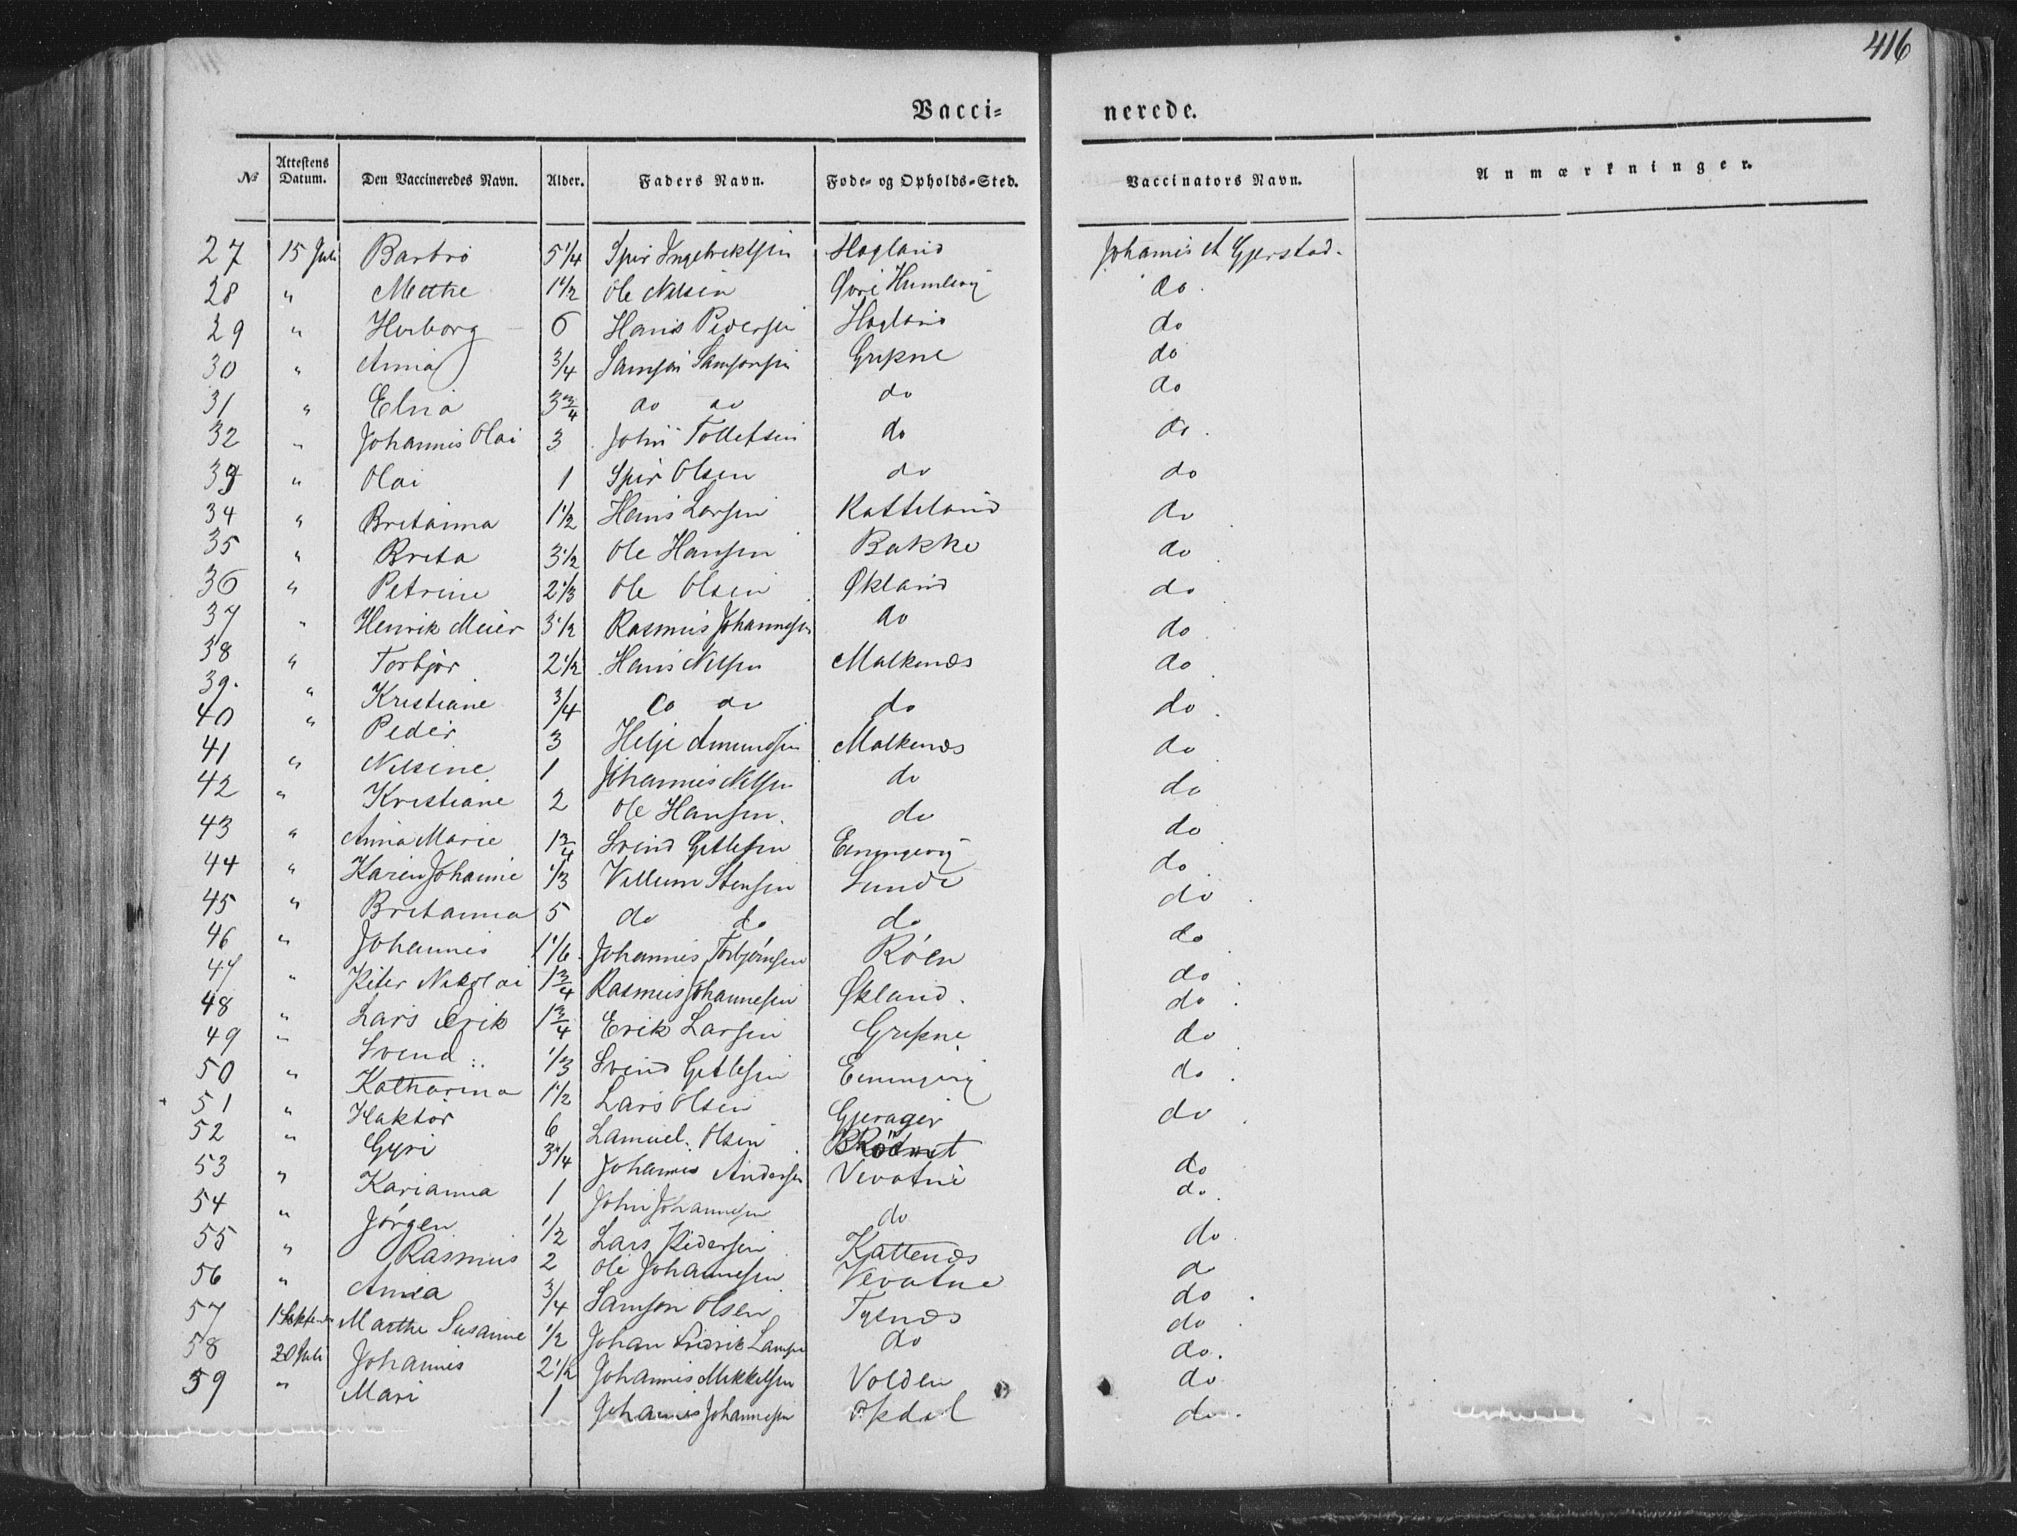 416
Vacci= nerede.
№ Attestens Datum. Den Vaccineredes Navn. Alder. Faders Navn. Føde- og Opholds-Sted. Vaccinators Navn. Anmærkninger.
27 15 Juli Barbro 5 1/4 Hagland Johannis A Gjerstad.
28 " Methe 1 1/2 Ole Nilsen do
29 " Herborg 6 Hans Pedersen Hagland do
30 " Anna 3/4 Samson Samsonsen Gripne do
31 " Elna 3 3/4 do do do do
32 " Johannis Olai 3 John Tollefsen do do
33 " Olai 1 Olsen do do
34 " Britanna 1 1/2 Hans Larsen Katteland do
35 " Brita 3 1/2 Ole Hansen Bakke do
36 " Petrine 2 1/3 Ole Olsen Økland do
37 " Henrik Meier 3 1/2 Rasmus Johannesen do do
38 " Torbjør 2 1/2 Hans Nilsen Malkenæs do
39. " Kristiane 3/4 do do do do
40 " Peder 3 Helje Amundsen Malkenæs do
41 " Nilsine 1 Johannis Nilsen do do
42 " Kristiane 2 Ole Hansen. do do
43 " Anna Marie 1 3/4 Svend Getlesen do
44 " Karen Johanne 1/3 Villum Stensen Lunde do
45 " Britanna 5 do do do do
46 " Johannis 1 1/6 Johannis Torbjørnsen Røen do
47 " Peter Nikolai 1 3/4 Rasmus Johannesen Økland. do
48 " Lars Erik 1 3/4 Erik Larsen Gripne do
49 " Svend 1/3 Svend Getlesen do
50 " Katharina 1 1/2 Lars Olsen Gjerager do
51 " Haktor 6 Samuel Olsen do
52 " Gyri 3 1/4 Johannis Andersen Vevatne do
53 " Karianna 1 John Johannesen do do
54 " Jørgen 1/2 Lars Pedersen Kattenæs do
55 " Rasmus 2 Ole Johannesen Vevatne do
56 " Anna 3/4 Samson Olsen Tysnæs do
57 Marthe Susanne 1/2 Johan Fredrik do do
58 20 Juli Johannis 2 1/2 Johannis Mikkelsen Volden do
59 " Mari 1 Johannis Johannesen Opdal do.